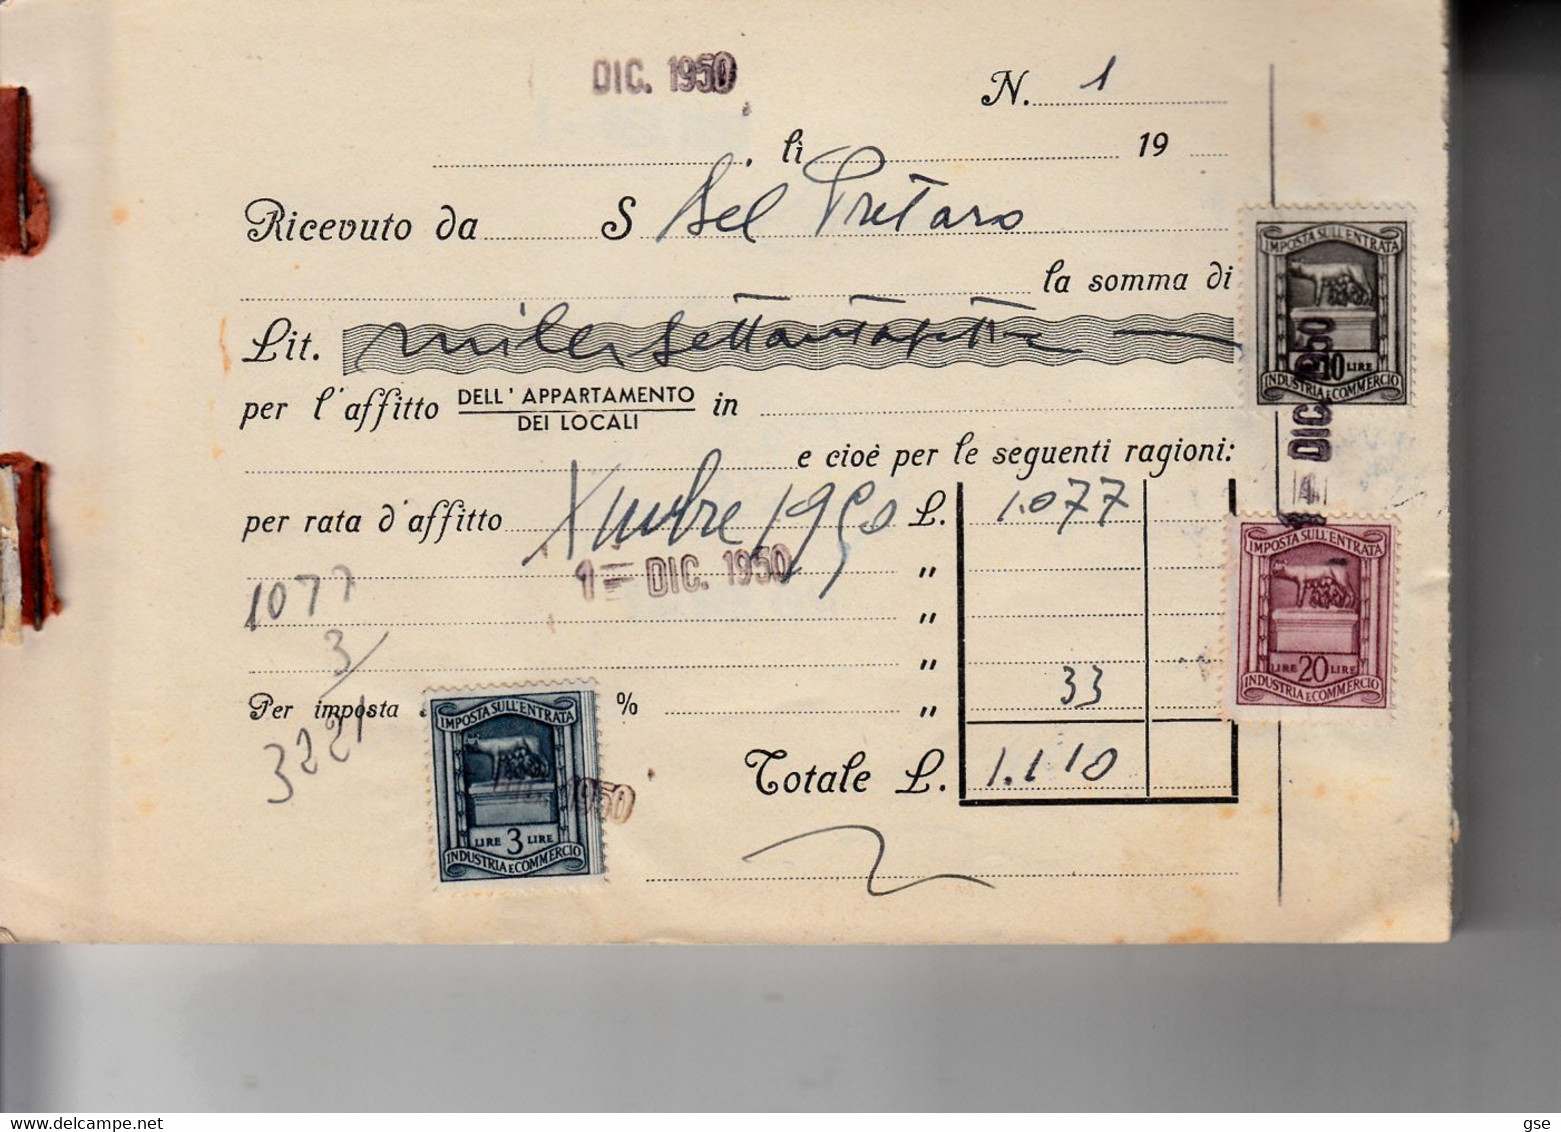 DIC. 1950
N. 1
, lì 19
Ricevuto da S Del Pretaro
la somma di
Lit. mille settantasette
per l'affitto DELL'APPARTAMENTO in
DEI LOCALI
e cioè per le seguenti ragioni:
per rata d'affitto Xmbre 1950 L. 1.077
1 = DIC. 1950 "
1077 "
3 "
Per imposta % " 33
3221
Totale L. 1.110
IMPOSTA SULL'ENTRATA
10 LIRE
INDUSTRIA E COMMERCIO
DIC. 1950
IMPOSTA SULL'ENTRATA
LIRE 20 LIRE
INDUSTRIA E COMMERCIO
IMPOSTA SULL'ENTRATA
1950
LIRE 3 LIRE
INDUSTRIA E COMMERCIO
delcampe.net
gse